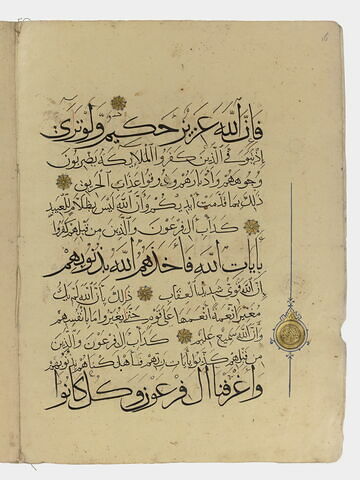 فان الله عزيز حكيم ولو ترى
اذ يتوفى الذين كفروا الملائكة يضربون
وجوههم وادبارهم وذوقوا عذاب الحريق
ذلك بما قدمت ايديكم وان الله ليس بظلام للعبيد
كداب ال فرعون والذين من قبلهم كفروا
بايات الله فاخذهم الله بذنوبهم
ان الله قوي شديد العقاب ذلك بان الله لم يك
مغيرا نعمة انعمها على قوم حتى يغيروا ما بانفسهم
وان الله سميع عليم كداب ال فرعون والذين
من قبلهم كذبوا بايات ربهم فاهلكناهم بذنوبهم
واغرقنا ال فرعون وكل كانوا